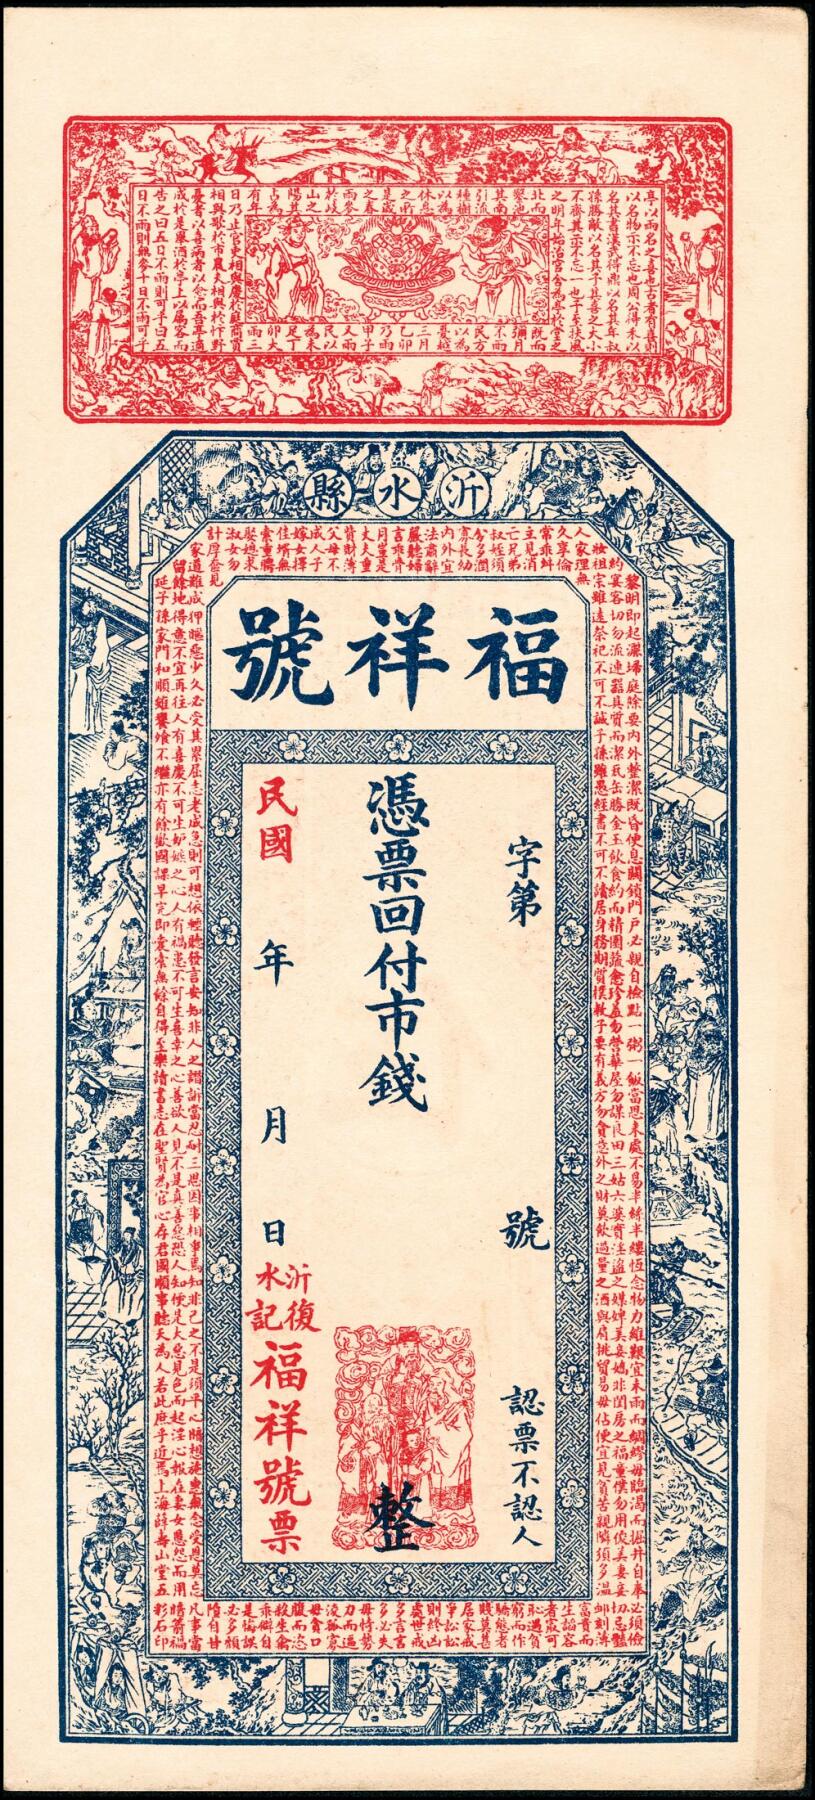 亭以雨名之喜也古者有喜則
以名物示不忘也周公得禾以
名其書漢武得鼎以名其年叔
孫勝敵以名其子其喜之大小
不齊其示不忘一也予至扶風
之明年始治官舍為亭於堂之
北而
鑿池
其南
引流
種樹
以為
休息
之所
是歲
之春
雨麥
於岐
山之
陽其
占為
有年
既而
彌月
不雨
民方
以為
憂越
三月
乙卯
乃雨
甲子
又雨
民以
為未
足丁
卯大
雨三
日乃止官吏相與慶於庭商賈
相與歌於市農夫相與忭於野
憂者以喜病者以愈而吾亭適
成於是舉酒於亭上以屬客而
告之曰五日不雨則可乎曰五
日不雨則無麥十日不雨可乎
沂水縣
黎明即起灑掃庭除要內外整潔既昏便息關鎖門戶必親自檢點一粥一飯當思來處不易半絲半縷恆念物力維艱宜未雨而綢繆毋臨渴而掘井自奉必須儉
約宴客切勿流連器具質而潔瓦缶勝金玉飲食約而精園蔬愈珍羞勿營華屋勿謀良田三姑六婆實淫盜之媒婢美妾嬌非閨房之福童僕勿用俊美妻妾切忌豔
妝祖宗雖遠祭祀不可不誠子孫雖愚經書不可不讀居身務期質樸教子要有義方勿貪意外之財莫飲過量之酒與肩挑貿易毋佔便宜見貧苦親鄰須多溫卹刻薄
人家理無
久享倫
常乖舛
立見消
亡兄弟
叔姪須
分多潤
寡長幼
內外宜
法肅辭
嚴聽婦
言乖骨
肉豈是
丈夫重
貲財薄
父母不
成人子
嫁女擇
佳壻無
索重聘
娶媳求
淑女勿
計厚奩見
富貴而
生諂容
者最可
恥遇貧
窮而作
驕態者
賤莫甚
居家戒
爭訟訟
則終凶
處世戒
多言言
多必失
毋恃勢
力而逼
凌孤寡
毋貪口
腹而恣
殺生禽
乖僻自
是悔誤
必多頹
隳自甘
家道難成狎暱惡少久必受其累屈志老成急則可相依輕聽發言安知非人之譖訴當忍耐三思因事相爭焉知非己之不是須平心暗想施惠無念受恩莫忘凡事當
留餘地得意不宜再往人有喜慶不可生妒嫉之心人有禍患不可生喜幸之心善欲人見不是真善惡恐人知便是大惡見色而起淫心報在妻女匿怨而用暗箭禍
延子孫家門和順雖饔飧不繼亦有餘歡國課早完即囊橐無餘自得至樂讀書志在聖賢為官心存君國順事聽天為人若此庶乎近焉上海薛壽山堂五彩石印
福祥號
字第 號 認票不認人
憑票回付市錢 整
民國 年 月 日
沂復
水記
福祥號票